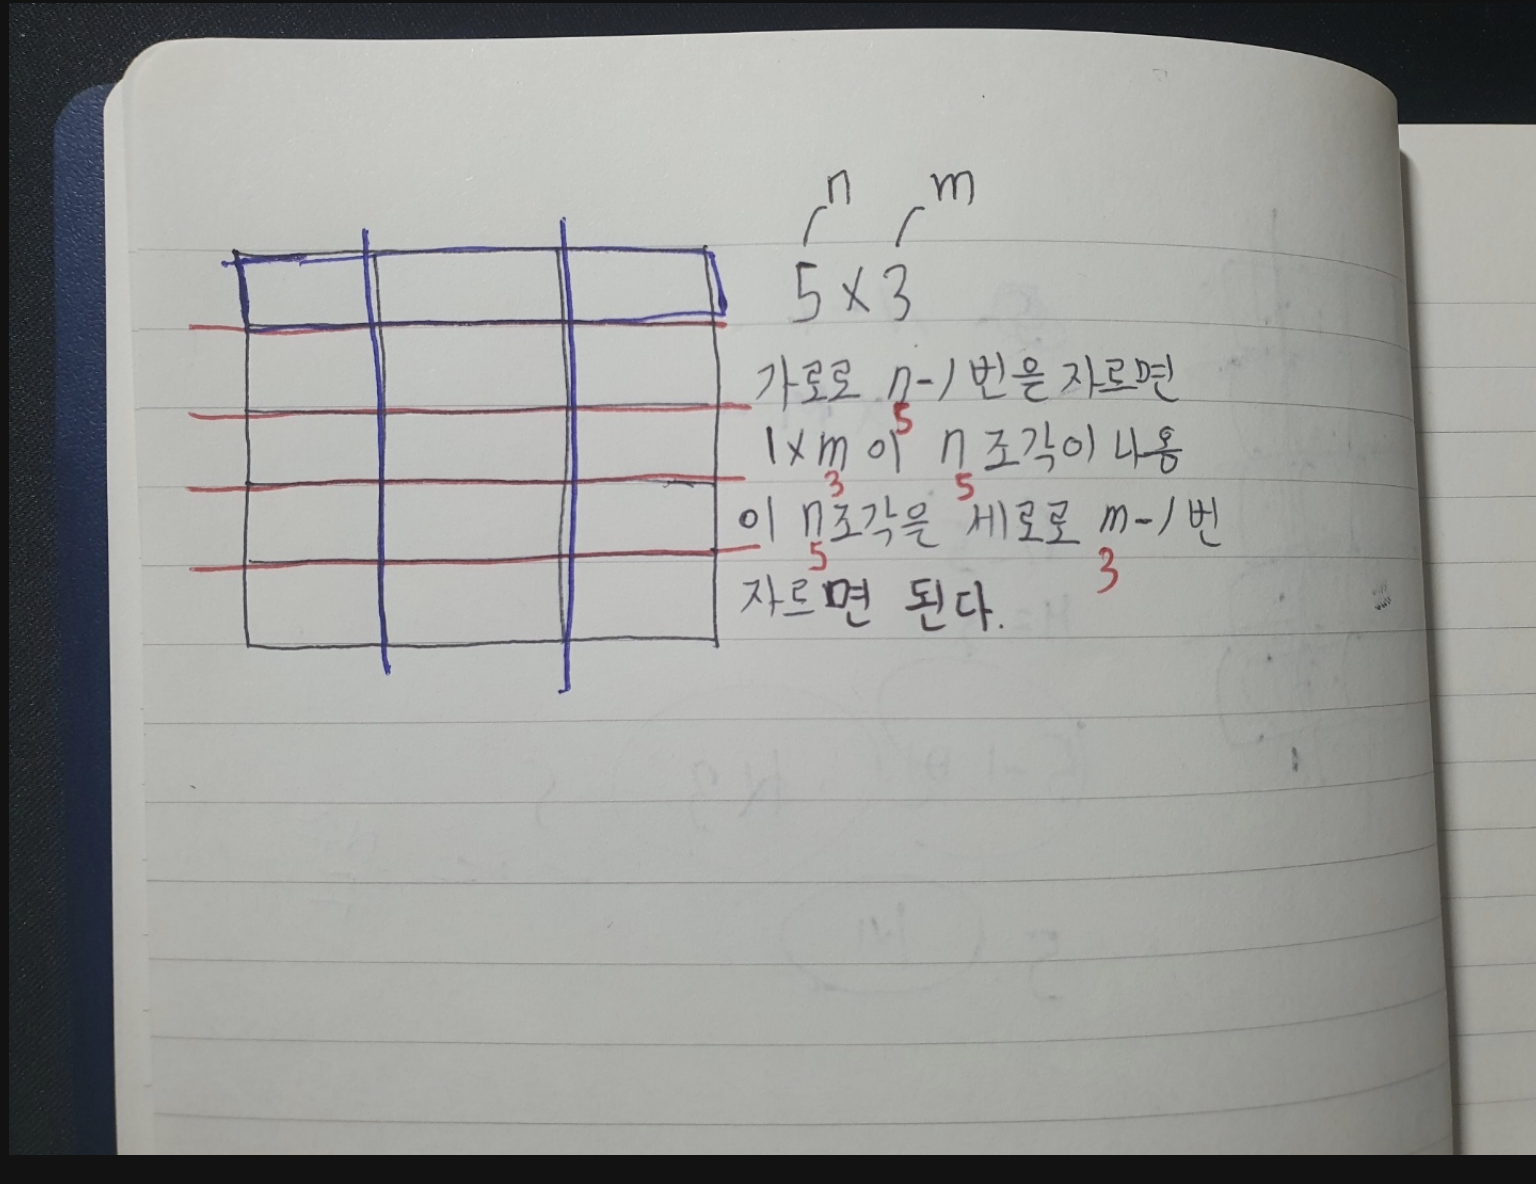 n m
5 x 3
가로로 n-1 번은 자르면
5
1 x m 이 n 조각이 나옴
3 5
이 n조각은 세로로 m-1 번
5 3
자르면 된다.